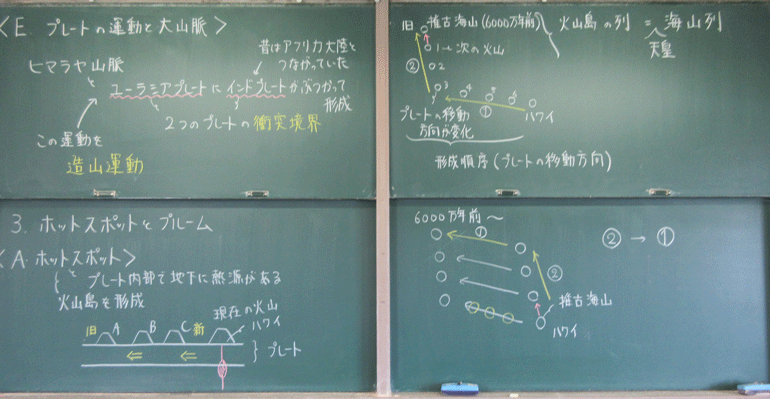 <E. プレートの運動と大山脈>
昔はアフリカ大陸と
つながっていた
ヒマラヤ山脈
と
ユーラシアプレートにインドプレートがぶつかって
形成
2つのプレートの衝突境界
この運動を
造山運動
3. ホットスポットとプルーム
<A.ホットスポット>
と プレート内部で地下に熱源がある
火山島を形成
現在の火山
ハワイ
旧 A B C 新
プレート
旧 推古海山(6000万年前)
火山島の列 = 海山列
天皇
1→次の火山
②
2
3
4 5 6
①
ハワイ
プレートの移動
方向が変化
形成順序(プレートの移動方向)
6000万年前〜
①
②→①
②
推古海山
ハワイ